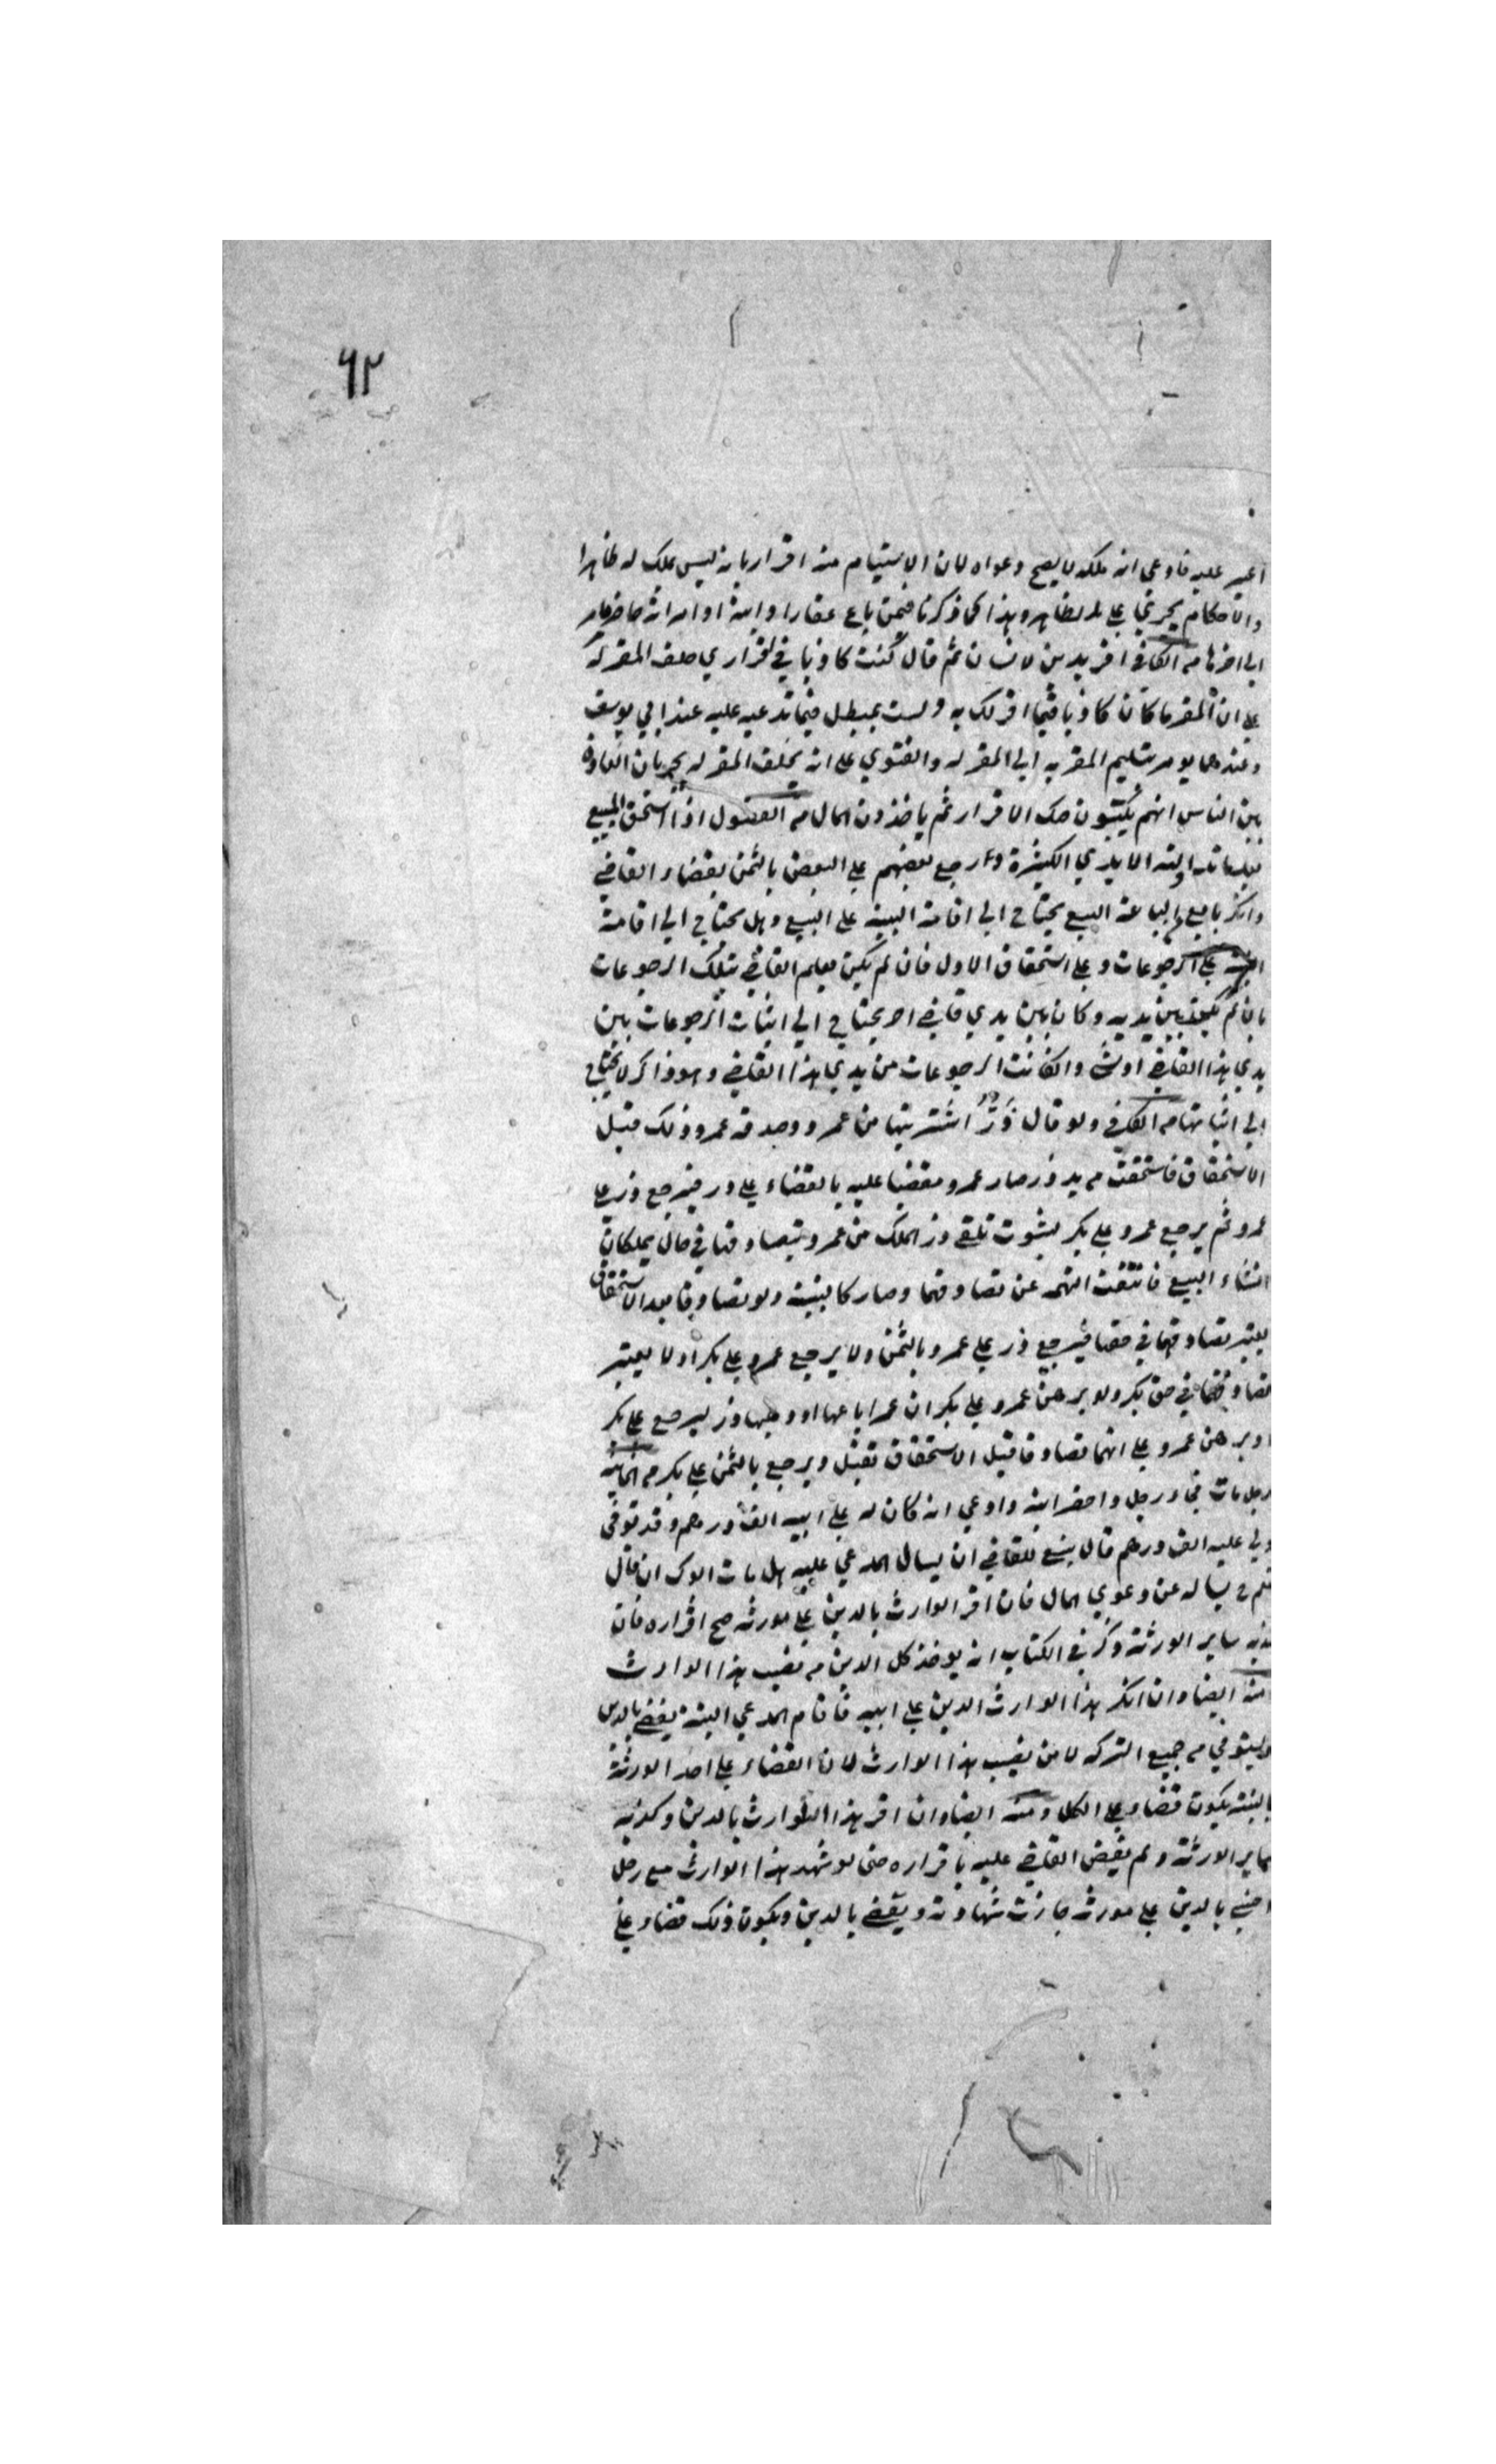 ٦٢
اعير عليه فادعى انه ملكه لا يصح دعواه لان الاستيام منه اقرار بانه ليس بملك له ظاهرا
والاحكام يجري على الظاهر وهذا كما ذكرنا فيمن باع عقارا وابنه او امراته حاضر
الى اخرها من الكافي اقر بدين لانسان ثم قال كنت كاذبا في اقراري حلف المقر له
على ان المقر ما كان كاذبا فيما اقر لك به ولست بمبطل فيما تدعيه عليه عند ابي يوسف
وعندهما يومر بتسليم المقر به الى المقر له والفتوي على انه يحلف المقر له لجريان العادة
بين الناس انهم يكتبون صك الاقرار ثم ياخذون المال من الفصول اذا استحق المبيع
بعد ما تداولته الايدي الكثيرة وارجع بعضهم على البعض بالثمن بقضاء القاضي
وانكر بايع البيع يحتاج الى اقامة البينة على البيع وهل يحتاج الى اقامة
البينة على الرجوعات وعلى استحقاق الاول فان لم يكن يعلم القاضي بتلك الرجوعات
بان لم يكن بين يديه وكان بين يدي قاضي اخر يحتاج الى اثبات الرجوعات بين
يدي هذا القاضي وان كانت الرجوعات من يدي هذا القاضي وهو ذاكر لا يحتاج
الى اثباتها من الكافي ولو قال ذو اشتريتها من عمرو وصدقه عمرو وذلك قبل
الاستحقاق فاستحقت من يد ذر صار عمرو مقضيا عليه بالقضاء على ذر فيرجع ذر على
عمرو ثم يرجع عمرو على بكر لثبوت تلقي ذر الملك من عمرو بتصادقهما في حال يملكان
انشاء البيع فانتفت التهمة عن تصادقهما وصار كالبينة ولو تصادقا بعد الاستحقاق
يعتبر تصادقهما في حقهما فيرجع ذر على عمرو بالثمن ولا يرجع عمرو على بكر اذ لا يعتبر
تصادقهما في حق بكر ولو برهن عمرو على بكر ان عمرا باعها او وهبها ذر ليرجع على بكر
او برهن عمرو على انهما تصادقا قبل الاستحقاق تقبل ويرجع بالثمن على بكر من
رجل مات فجاء رجل واحضر ابنه وادعى انه كان له على ابيه الف درهم وقد توفي
ولي عليه الف درهم قال ينبغي للقاضي ان يسال المدعي عليه هل مات ابوك ان قال
نعم ح يساله عن دعوي المال فان اقر الوارث بالدين على مورثه صح اقراره فان
كذبه ساير الورثة ذكر في الكتاب انه يوخذ كل الدين من نصيب هذا الوارث
منه ايضا وان انكر هذا الوارث الدين على ابيه فاقام المدعي البينة يقضي بالدين
ويستوفي من جميع التركة لا من نصيب هذا الوارث لان القضاء على احد الورثة
بالبينة يكون قضاء على الكل ومنه ايضا وان اقر هذا الوارث بالدين وكذبه
ساير الورثة ولم يقض القاضي عليه باقراره حتى لو شهد هذا الوارث مع رجل
اجنبي بالدين على مورثه جازت شهادته ويقضي بالدين ويكون ذلك قضاء على